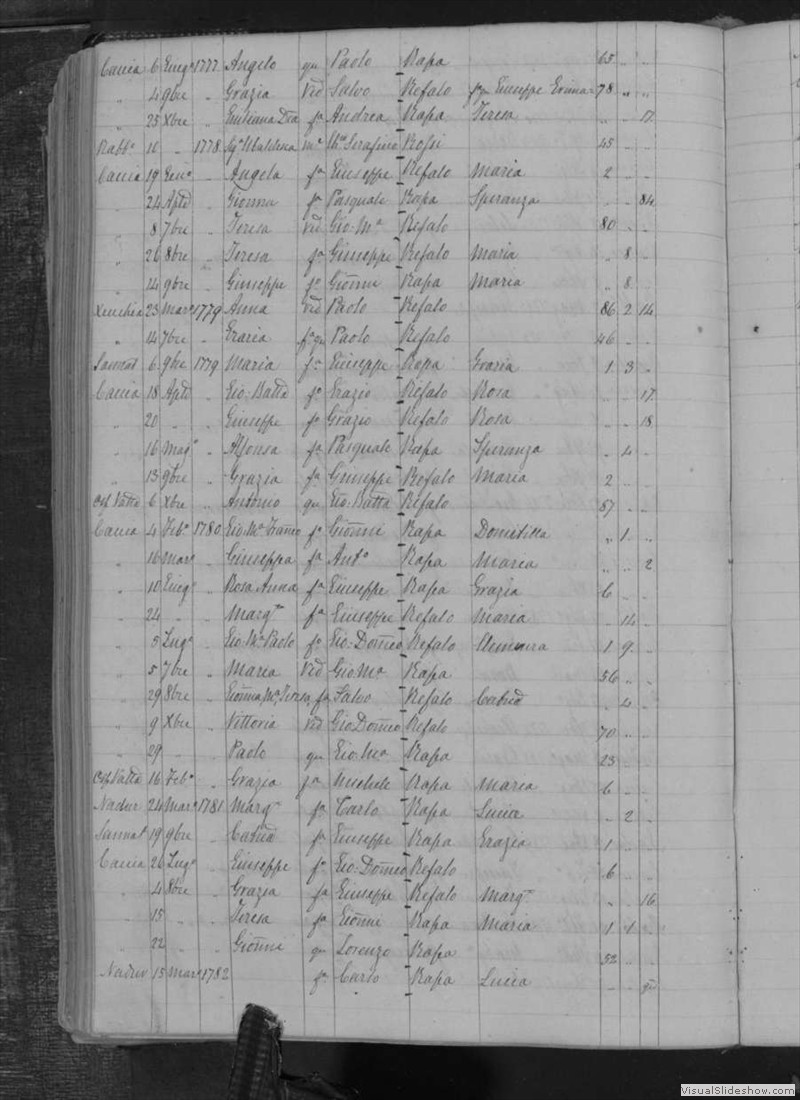 Caccia 6 Giugº 1777 Angelo qu Paolo Rapa 65 " "
" 4 9bre " Grazia Ved Salvo Refalo fª qu Giuseppe 78 " "
" 25 Xbre " fª Andrea Rapa Teresa " " 17
Rabbº 11 " 1778 Serafino Rossi 45 " "
Caccia 19 Genº " Angela fª Giuseppe Refalo Maria 2 " "
" 24 Aple " Gionna fª Pasquale Rapa Speranza " " 84
" 8 7bre " Teresa Ved Gio: Mª Refalo 80 " "
" 26 8bre " Teresa fª Giuseppe Refalo Maria " 8 "
" 14 9bre " Giuseppe fº Gionni Rapa Maria " 8 "
Xeuchia 23 Marº 1779 Anna Ved Paolo Refalo 86 2 14
" 14 7bre " Grazia fª qu Paolo Refalo 46 " "
Sannat 6 9bre 1779 Maria fª Giuseppe Rapa Grazia 1 3 "
Caccia 18 Aple " Gio: Batta fº Grazio Refalo Rosa " " 17
" 20 " " Giuseppe fº Grazio Refalo Rosa " " 18
" 16 Magº " Alfonsa fª Pasquale Rapa Speranza " 4 "
" 13 9bre " Grazia fª Giuseppe Refalo Maria 2 " "
6 Xbre " Antonio qu Gio: Batta Refalo 57 " "
Caccia 4 Febº 1780 Gio: Mª Francº fº Gionni Rapa Domitilla " 1 "
" 16 Marº " Giuseppa fª Antº Rapa Maria " " 2
" 10 Giugº " Rosa Anna fª Giuseppe Rapa Grazia 6 " "
" 24 " " Margta fª Giuseppe Refalo Maria " 14 "
" 5 Lugº " Gio: Mª Paolo fº Gio: Domeo Refalo 1 9 "
" 5 7bre " Maria Ved Gio Mª Rapa 56 " "
" 29 8bre " Gionna Mª Teresa fª Salvo Refalo " 4 "
" 9 Xbre " Vittoria Ved Gio Domeo Refalo 70 " "
" 29 " " Paolo qu Gio: Mª Rapa 23 " "
16 Febº " Grazia fª Michele Rapa Maria 6 " "
Nadur 24 Marº 1781 Margta fª Carlo Rapa Lucia " 2 "
Sannat 19 9bre " fª Giuseppe Rapa Grazia 1 " "
Caccia 26 Lugº " Giuseppe fº Gio: Domeo Refalo 6 " "
" 4 8bre " Grazia fª Giuseppe Refalo Margta " " 16
" 15 " " Teresa fª Gionni Rapa Maria 1 1 "
" 22 " " Gionni qu Lorenzo Rapa 52 " "
Nadur 15 Marº 1782 fº Carlo Rapa Lucia " "
VisualSlideshow.com